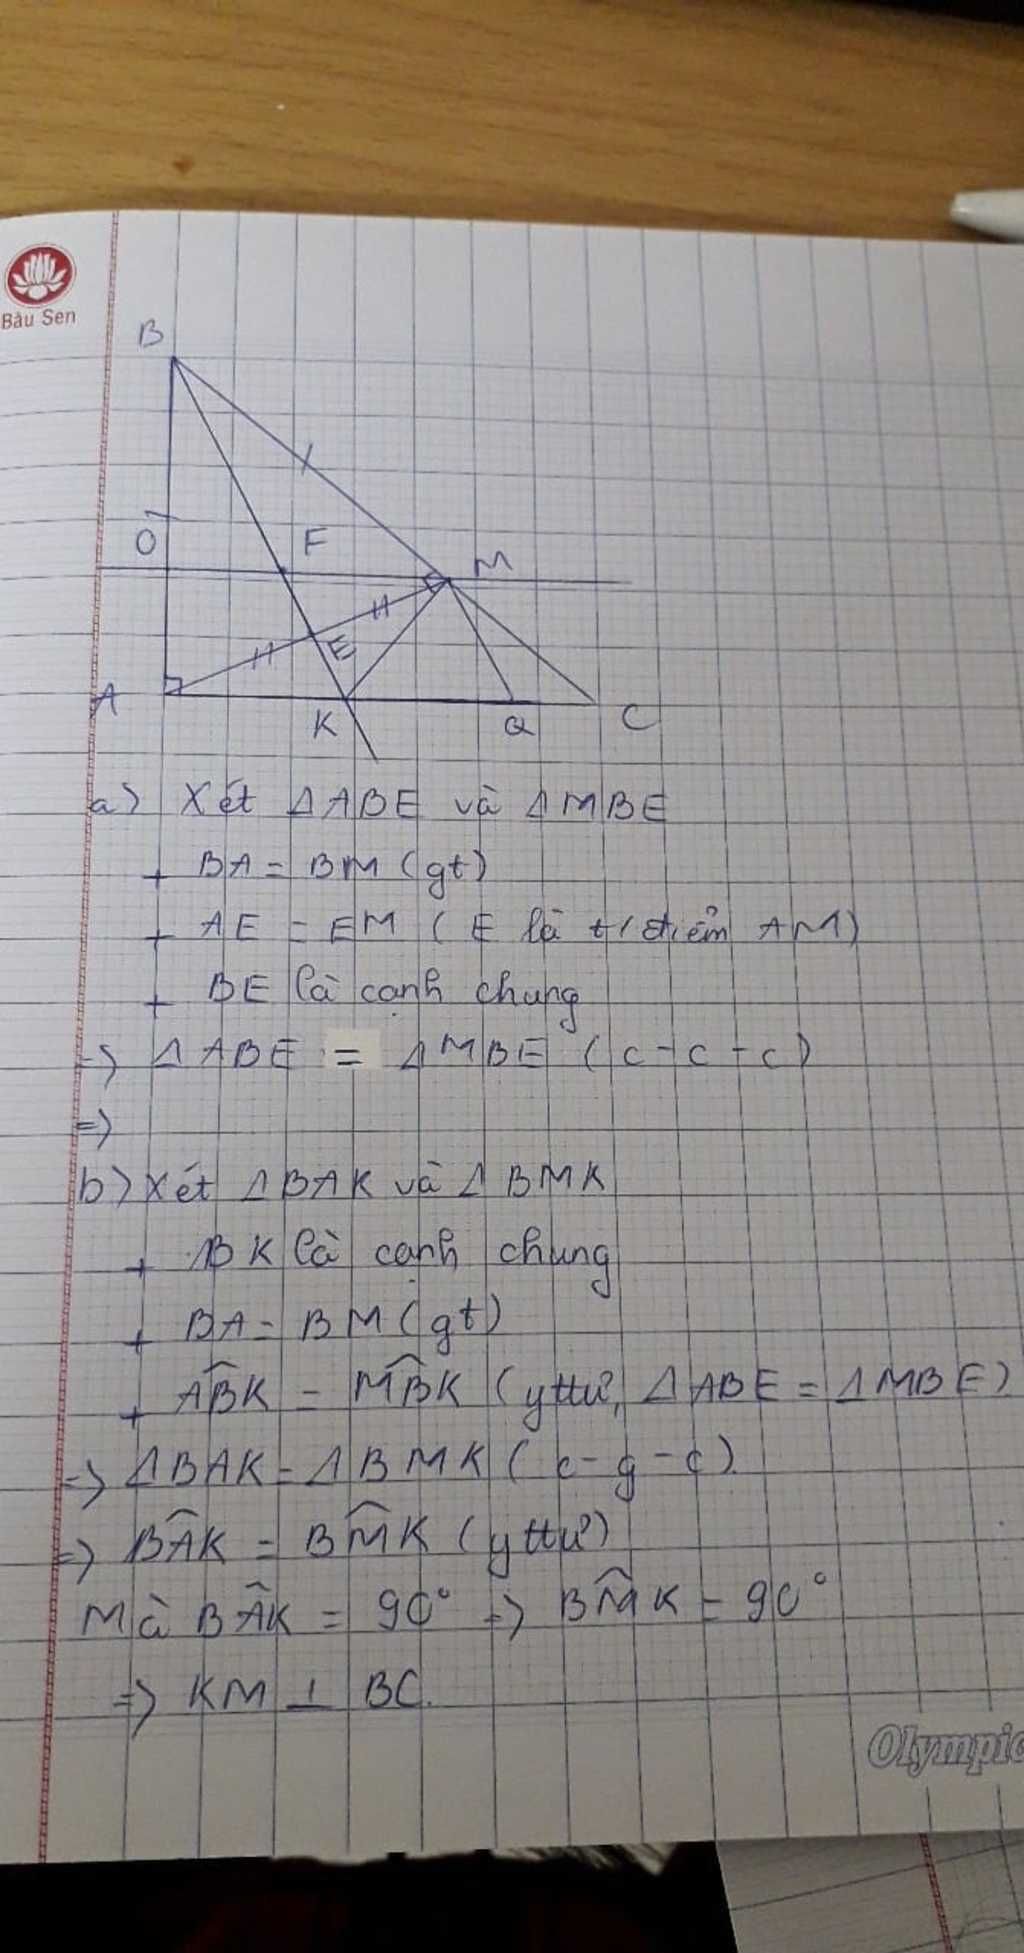 Bàu Sen
B
O
F
M
E
A
K
Q
C
a) Xét ΔABE và ΔMBE
+ BA = BM (gt)
+ AE = EM (E là t/điểm AM)
+ BE là cạnh chung
=> ΔABE = ΔMBE (c-c-c)
=>
b) Xét ΔBAK và ΔBMK
+ BK là cạnh chung
+ BA = BM (gt)
+ AB̂K = MB̂K (yttư, ΔABE = ΔMBE)
=> ΔBAK = ΔBMK (c-g-c)
=> BÂK = BM̂K (yttư)
Mà BÂK = 90° => BM̂K = 90°
=> KM ⊥ BC.
Olympic